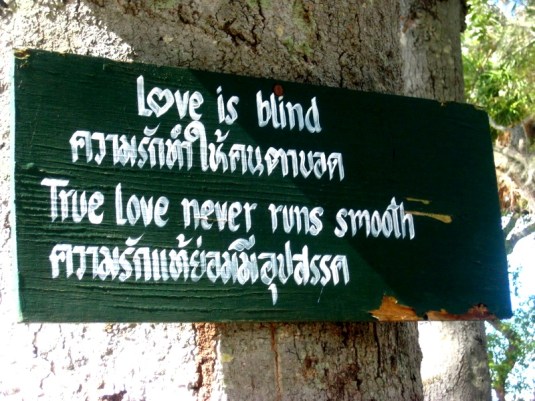 Love is blind
ความรักทำให้คนตาบอด
True love never runs smooth
ความรักแท้ย่อมมีอุปสรรค